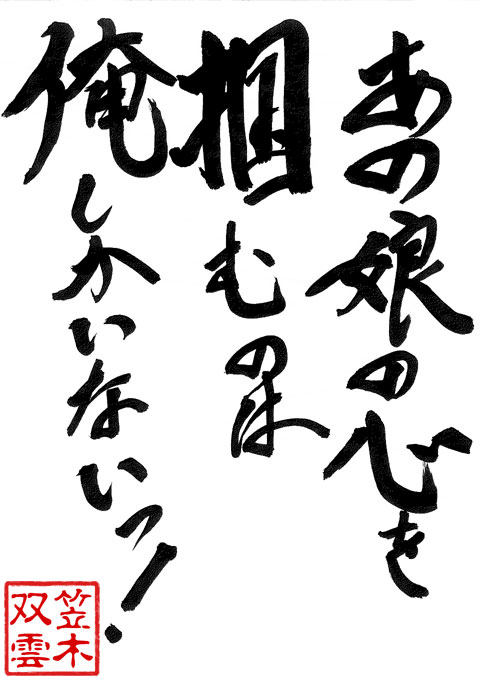 あの娘の心を
掴むのは
俺しかいないッ！
笠木
双雲